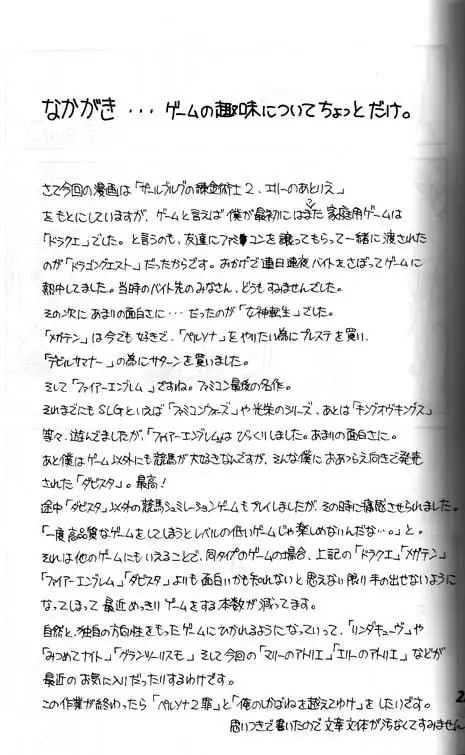 なかがき・・・ゲームの趣味についてちょっとだけ。
さて今回の漫画は「ザールブルグの錬金術士2、エリーのあとりえ」
をもとにしていますが、ゲームと言えば僕が最初にはまった家庭用ゲームは
「ドラクエ」でした。と言うのも、友達にファミコンを譲ってもらって一緒に渡された
のが「ドラゴンクエスト」だったからです。おかげで連日連夜バイトをさぼってゲームに
熱中してました。当時のバイト先のみなさん、どうもすみませんでした。
その次にあまりの面白さに・・・だったのが「女神転生」でした。
「メガテン」は今でも好きで、「ペルソナ」をやりたい為にプレステを買い、
「デビルサマナー」の為にサターンを買いました。
そして「ファイアーエンブレム」ですね。ファミコン最後の名作。
それまでにもSLGといえば「ファミコンウォーズ」や光栄のシリーズ、あとは「キングオヴキングス」
等々、遊んでましたが、「ファイアーエンブレム」はびっくりしました。あまりの面白さに。
あと僕はゲーム以外にも競馬が大好きなんですが、そんな僕におあつらえ向きで発売
された「ダビスタ」。最高!
途中「ダビスタ」以外の競馬シュミレーションゲームもプレイしましたが、その時に痛感させられました。
「一度高品質なゲームをしてしまうとレベルの低いゲームじゃ楽しめないんだな…。」と。
それは他のゲームにもいえることで、同タイプのゲームの場合、上記の「ドラクエ」「メガテン」
「ファイアーエンブレム」「ダビスタ」よりも面白いかも知れないと思えない限り手の出せないように
なってしまって最近めっきりゲームをする本数が減ってます。
自然と、独自の方向性をもったゲームにひかれるようになっていって、「リンダキューブ」や
「みつめてナイト」「グランツーリスモ」そして今回の「マリーのアトリエ」「エリーのアトリエ」などが
最近のお気に入りだったりするわけです。
この作業が終わったら「ペルソナ2罪」と「俺のしかばねを越えてゆけ」をしたいです。
思いつきで書いたので文章文体が汚なくてすみません
2